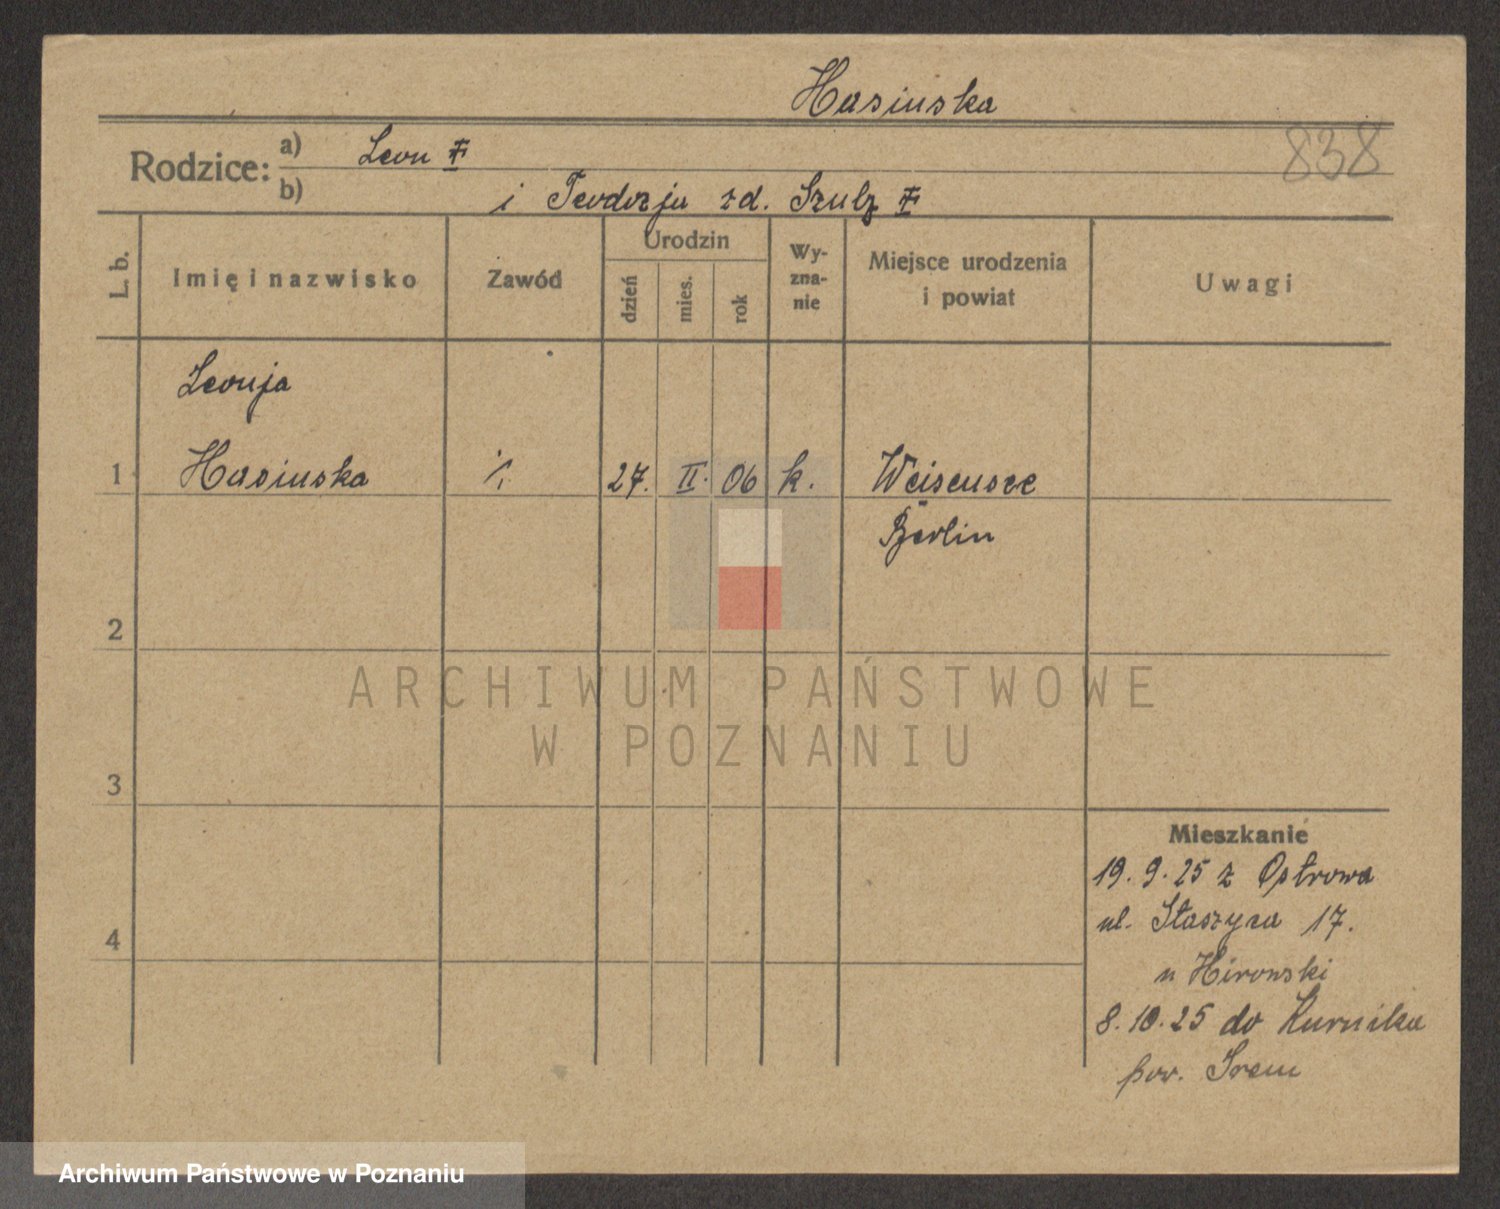 Hasinska
838
Rodzice: a) Leon
b) i Teodozja zd. Szulz
L. b.
Imię i nazwisko
Zawód
Urodzin
dzień
mies.
rok
Wy-
zna-
nie
Miejsce urodzenia
i powiat
Uwagi
Leonja
1 Hasinska ·/. 27. II. 06 k. Weisensee
Berlin
2
ARCHIWUM PAŃSTWOWE
W POZNANIU
3
Mieszkanie
19. 9. 25 z Ostrowa
ul. Staszyca 17.
u Hirowski
4
8. 10. 25 do Kurnika
pow. Srem
Archiwum Państwowe w Poznaniu